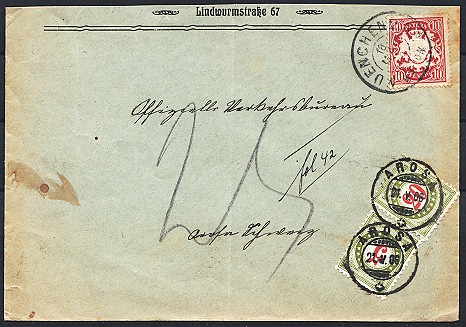 Lindwurmstraße 67
MUENCHEN
10 10
10 10
Offizielle Verkehrsbureau
fol 42
25
Arosa Schweiz
AROSA
AROSA